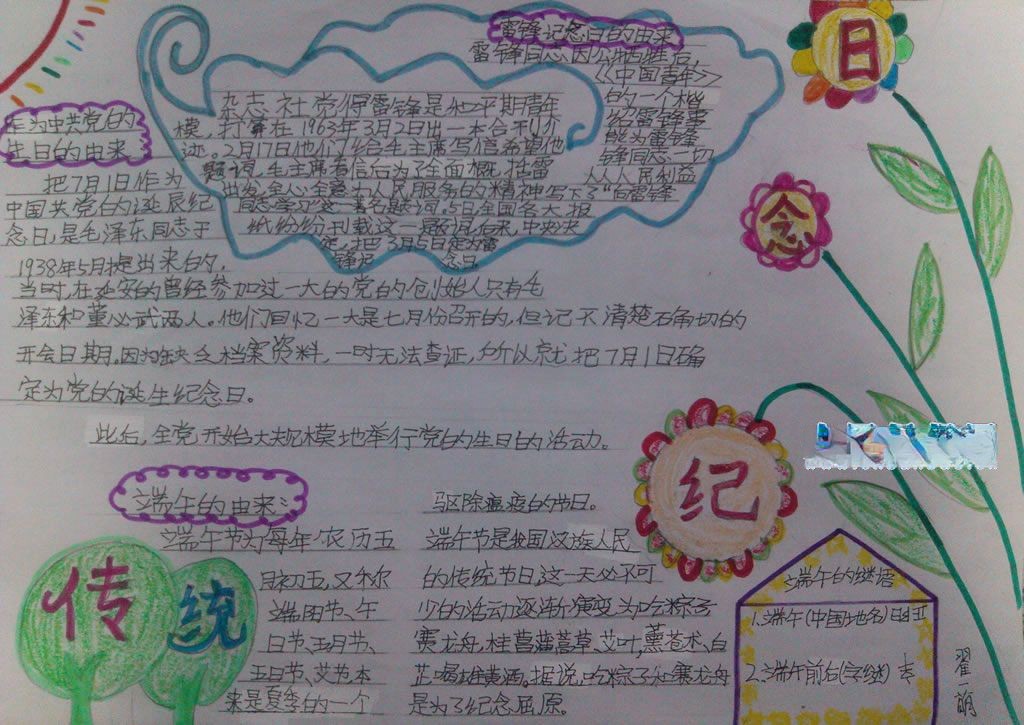 雷锋记念日的由来
雷锋同志因公牺牲后,
《中国青年》
杂志社觉得雷锋是和平期青年
的一个楷
模,打算在1963年3月2日出一本合刊介
绍雷锋事
迹。2月17日他们给毛主席写信希望他
能为雷锋
题词,毛主席看信后为了全面概括雷
锋同志一切
人人人民利益
出发,全心全意为人民服务的精神写下了“向雷锋
同志学习”这一著名题词。5日全国各大报
纸纷纷刊载这一题词后来,中央决
定,把3月5日定为雷
锋记 念日。
作为中共党的
生日的由来
把7月1日作为
中国共党的诞辰纪
念日,是毛泽东同志于
1938年5月提出来的,
当时,在延安的曾经参加过一大的党的创始人只有毛
泽东和董必武两人。他们回忆一大是七月份召开的,但记不清楚石角切的
开会日期。因为缺乏档案资料,一时无法查证,所以就把7月1日确
定为党的诞生纪念日。
此后,全党开始大规模地举行党的生日的活动。
端午的由来:
端午节为每年农历五
月初五,又称
端阳节、午
日节、五月节、
五日节、艾节本
来是夏季的一个
驱除瘟疫的节日。
端午节是我国汉族人民
的传统节日,这一天必不可
少的活动逐渐演变为吃粽子
赛龙舟,挂菖蒲蒿草、艾叶,薰苍术、白
芷,喝雄黄酒。据说,吃粽子和赛龙舟
是为了纪念屈原。
传统
纪
念
日
端午的谜语
1.端午(中国地名)
2.端午前后(字谜)
翟一萌